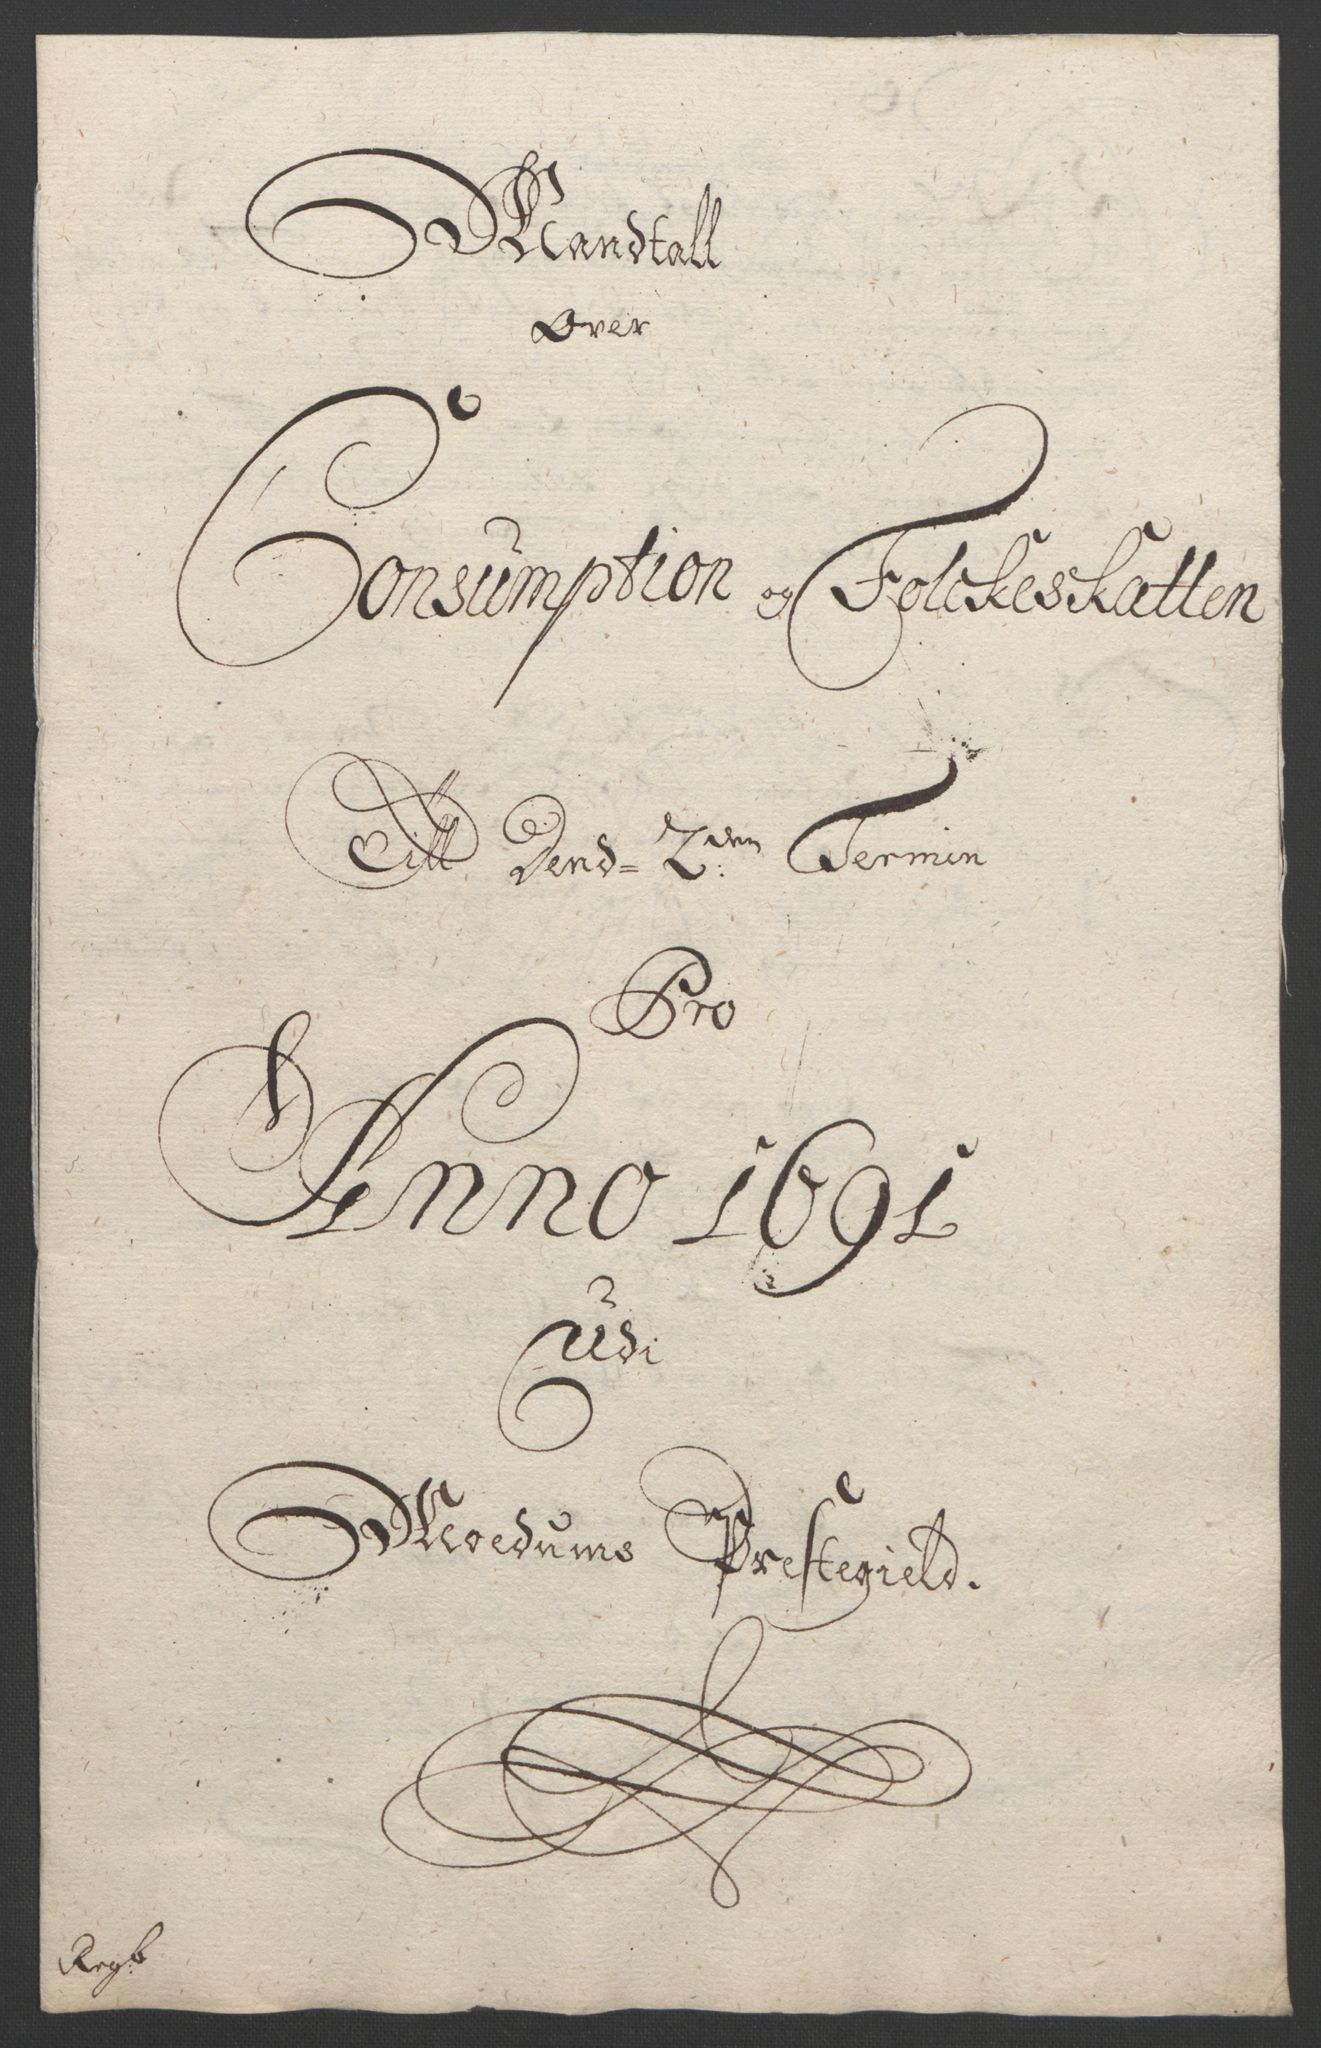 Mandtall
Over
Consumption og Folckeskatten
Till Dend= 2den: Termin
Pro
Anno 1691
Udi
Moedums Prestegield.